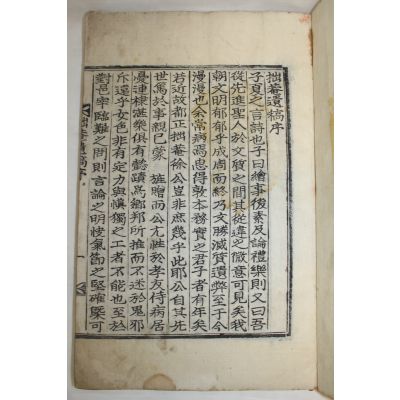 拙菴遺稿序
子夏之言詩也子曰繪事後素及論禮樂則又曰吾
從先進聖人於文質之間其從違之微意可見矣我
朝文明郁郁乎成周而終乃文勝滅質遺弊至于今
漫漫也余常病焉思得敦本務實之君子者有年矣
若近故都正拙菴徐公豈非庶幾乎此耶公自其先
世篤於事親已蒙 旌贈而公尤性於孝友侍病居
憂連棣湛樂俱有懿蹟爲鄕邦所推而不迷於鬼邪
斥遠乎女色非有定力與愼獨之工者不能也至於
對邑宰臨難之問則言論之明快氣節之堅確槩可
拙菴遺稿序